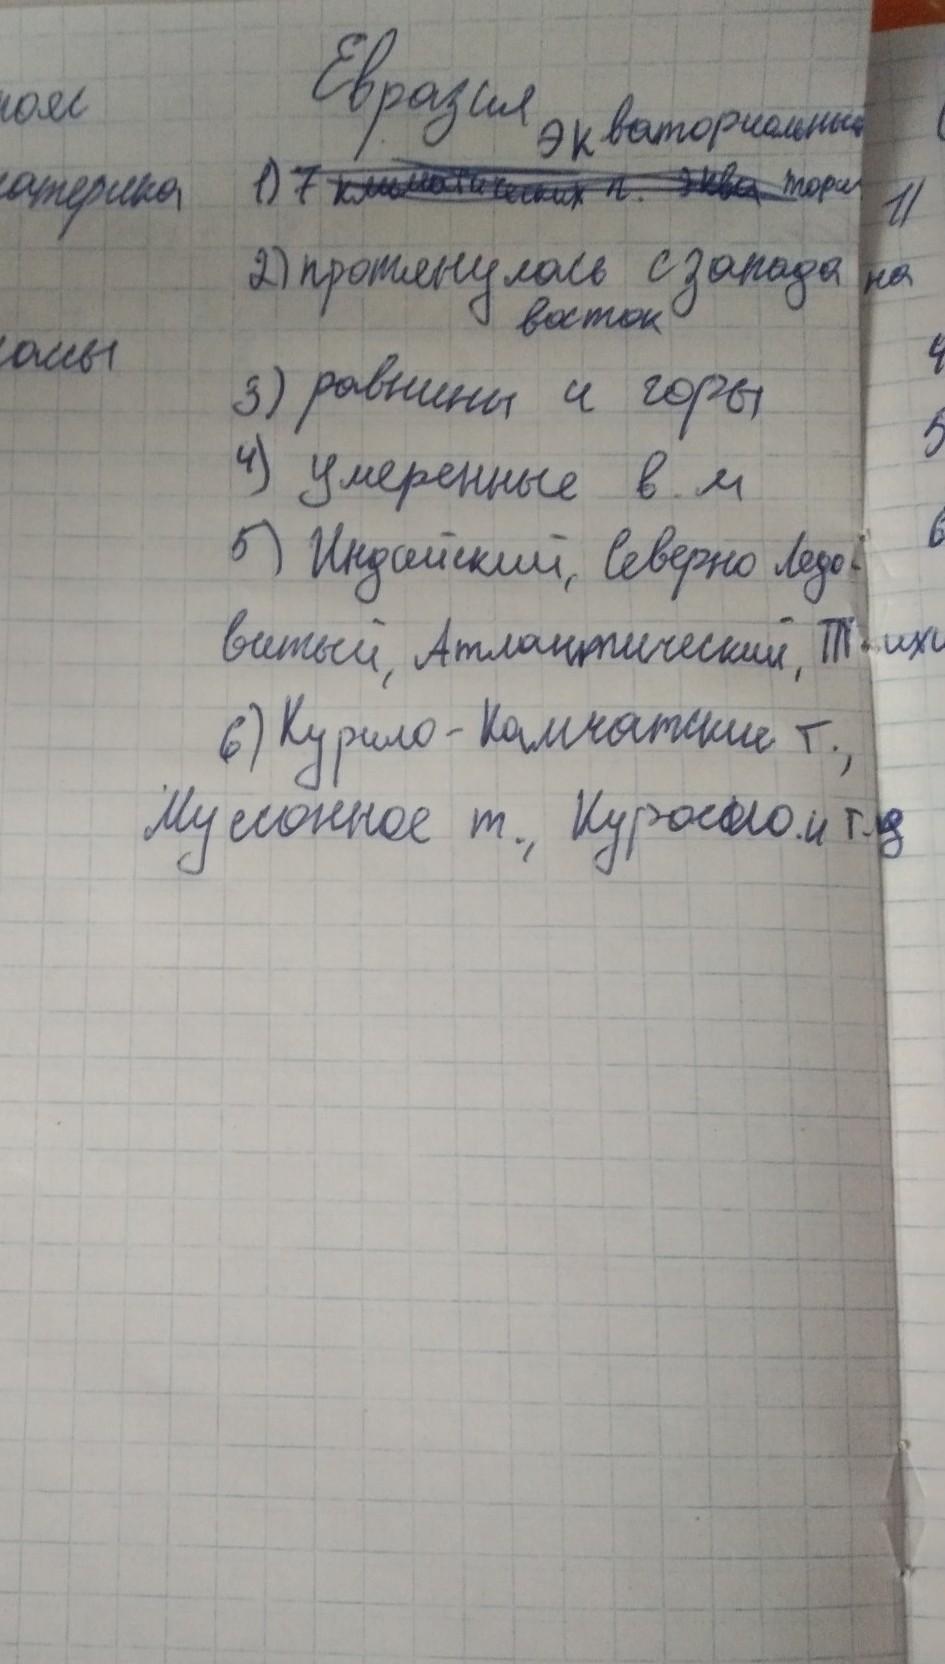 Евразия
экваториальный
1) 7 климатических п. эква тори
2) протянулась с запада на
восток
3) равнины и горы
4) умеренные в. м
5) Индийский, Северно Ледо-
витый, Атлантический, Тихи
6) Курило-Камчатские т.,
Муссонное т., Куросио.и т.д
пояс
материка
1)
4
5
6